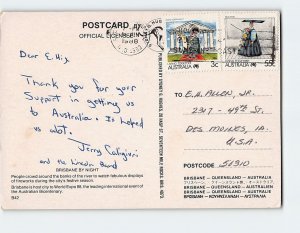 POSTCARD
OFFICIAL LICENSEE
AUSTRALIA
3c
AUSTRALIA
55c
Dear E. Hiz
Thank you for your
support in getting us
to Australia. It helped
us alot.
Jerry Calegiuri
and the Lincoln Band
TO:
E.H. ALLEN, JR.
2317 - 49th St.
DES MOINES, IA.
U.S.A.
POSTCODE 50310
BRISBANE BY NIGHT
People crowd around the banks of the river to watch fabulous displays
of fireworks during the city's festive season.
Brisbane is host city to World Expo 88, the leading international event of
the Australian Bicentenary.
B42
BRISBANE – QUEENSLAND – AUSTRALIA
BRISBANE – QUEENSLAND – AUSTRALIE
BRISBANE – QUEENSLAND – AUSTRALIEN